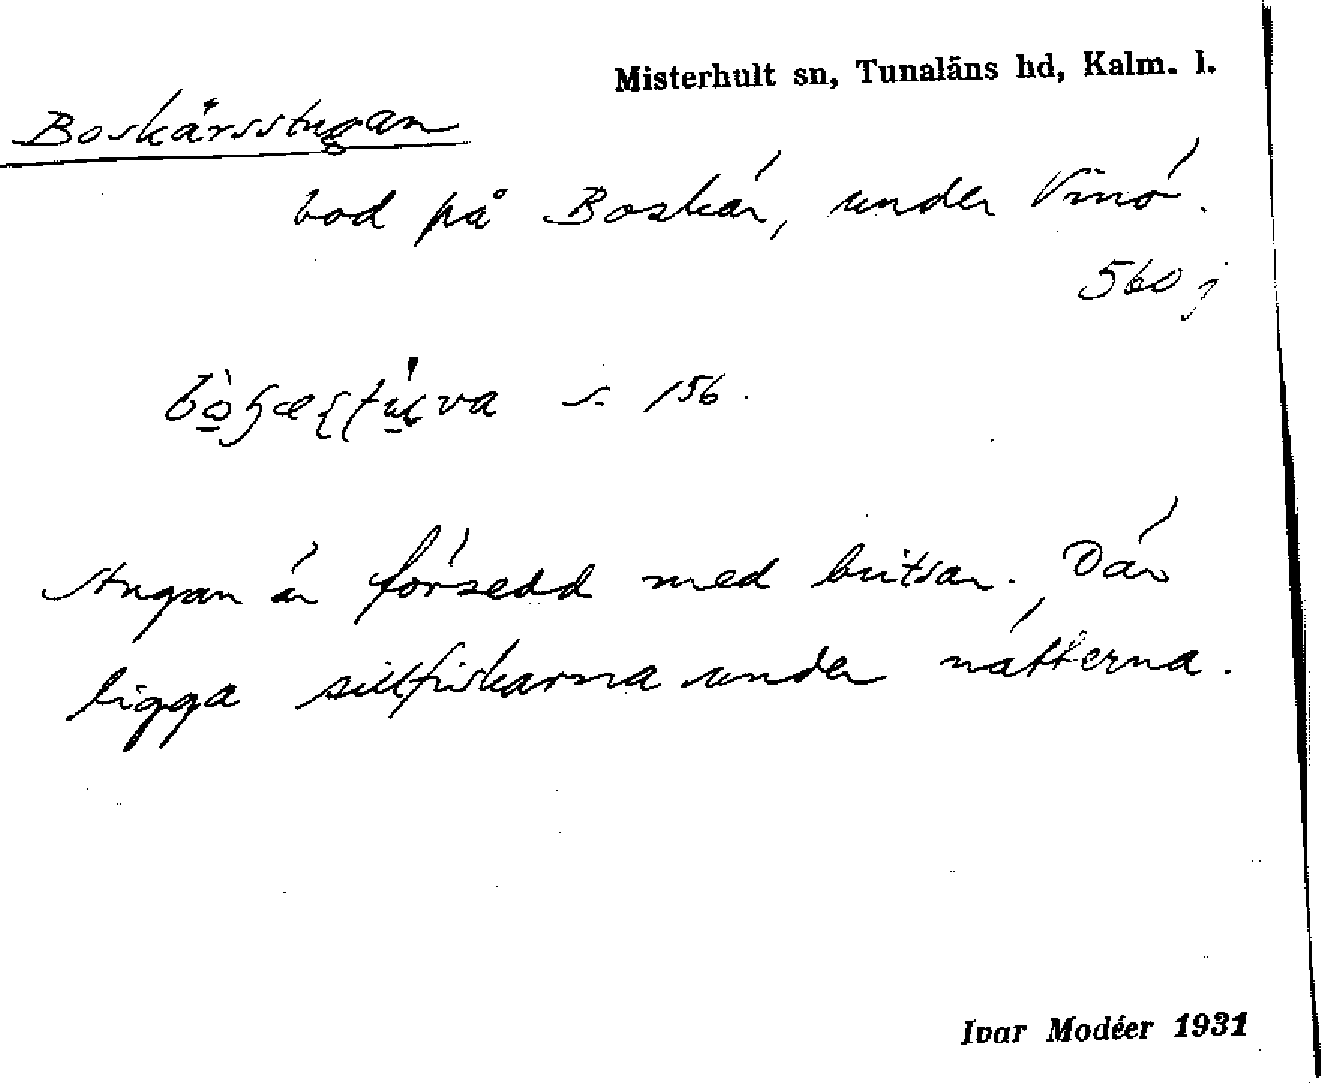 Misterhult sn, Tunaläns hd, Kalm. l.
Boskärsstugan
bod på Boskär, under Vinö.
560 j
s. 156.
Stugan är försedd med britsar. Där
ligga sillfiskarna under nätterna.
Ivar Modéer 1931